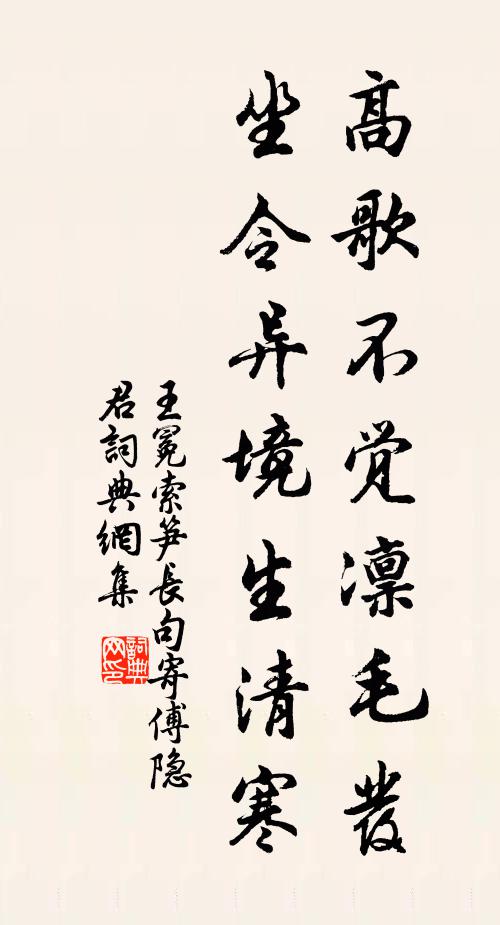 高歌不觉凛毛发
坐令异境生清寒
王冕索笋长句寄傅隐
君詞典網集
詞典网印